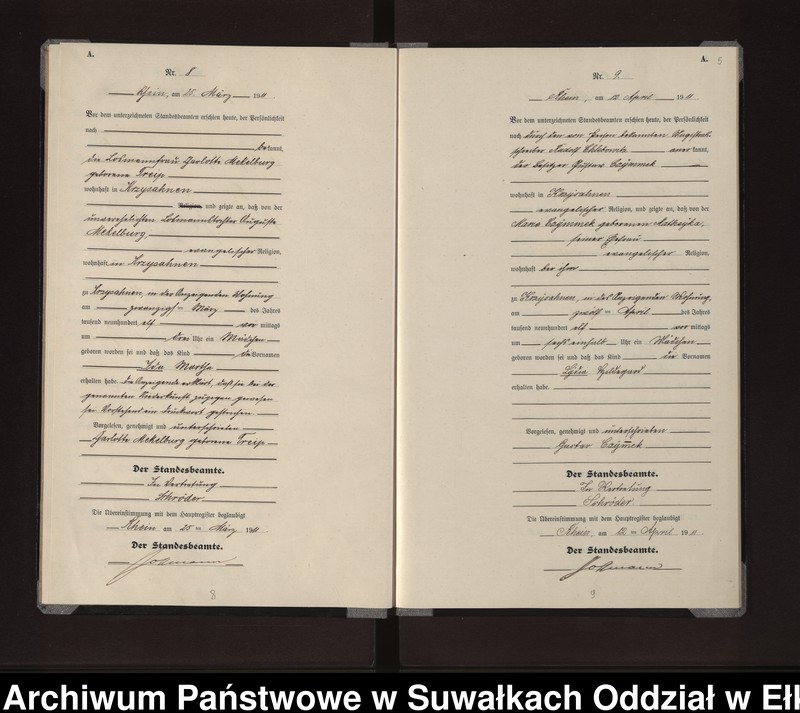 A.
Nr. 8
Rhein, am 25. März 1911
Vor dem unterzeichneten Standesbeamten erschien heute, der Persönlichkeit
nach
bekannt,
die Losmannfrau Charlotte Mekelburg
geborene
wohnhaft in Krzysahnen
Religion, und zeigte an, daß von der
unverehelichten Losmannstochter Auguste
Mekelburg,
evangelischer Religion,
wohnhaft in Krzysahnen
zu Krzysahnen, in der Anzeigenden Wohnung
am zwanzigsten März des Jahres
tausend neunhundert elf vor mittags
um drei Uhr ein Mädchen
geboren worden sei und daß das Kind die Vornamen
Ida Martha
erhalten habe. Die Anzeigende erklärt, daß sie bei der
genannten Niederkunft zugegen gewesen
sei. Vorstehend ein Druckwort gestrichen.
Vorgelesen, genehmigt und unterschrieben
Charlotte Mekelburg geborene
Der Standesbeamte.
In Vertretung
Schröder
Die Übereinstimmung mit dem Hauptregister beglaubigt
Rhein am 25 ten März 1911
Der Standesbeamte.
8
A. 5
Nr. 9.
Rhein, am 12. April 1911
Vor dem unterzeichneten Standesbeamten erschien heute, der Persönlichkeit
nach durch den von Person bekannten Magistrats
schreiber Rudolf anerkannt,
der Besitzer Gustav Czymmek
wohnhaft in Krzysahnen
evangelischer Religion, und zeigte an, daß von der
Marie Czymmek geborenen
seiner Ehefrau
evangelischer Religion,
wohnhaft bei ihm
zu Krzysahnen, in des Anzeigenden Wohnung,
am zwölften April des Jahres
tausend neunhundert elf vor mittags
um sechs einhalb Uhr ein Mädchen
geboren worden sei und daß das Kind die Vornamen
Hildegard
erhalten habe.
Vorgelesen, genehmigt und unterschrieben
Gustav Czymmek
Der Standesbeamte.
In Vertretung
Schröder
Die Übereinstimmung mit dem Hauptregister beglaubigt
Rhein, am 12 ten April 1911
Der Standesbeamte.
9
Archiwum Państwowe w Suwałkach Oddział w Ełk